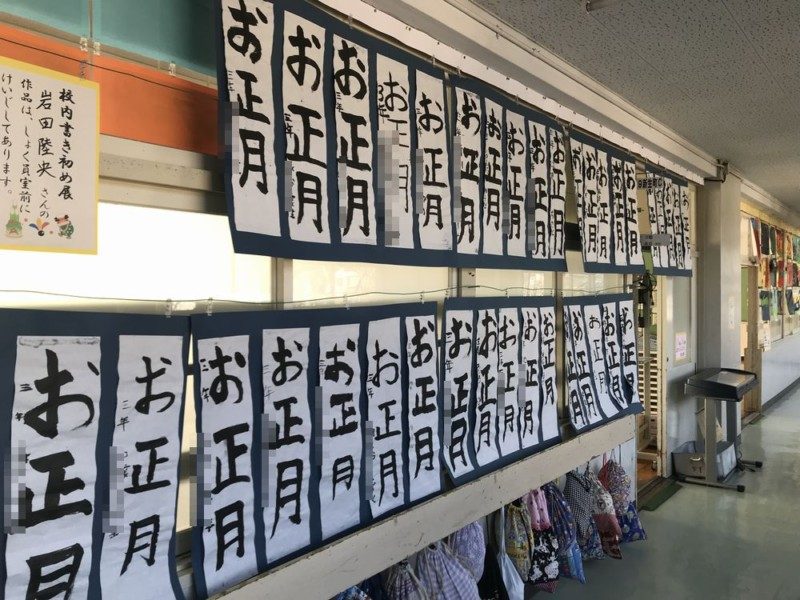 校内書き初め展
岩田陸央 さんの
作品は、しょく員室前に
けいじしてあります。
お正月
三年
お正月
三年
お正月
三年
お正月
お正月
お正月
お正月
お正月
お正月
お正月
お正月
お正月
お正月
お正月
お正月
お正月
三年
お正月
三年
お正月
三年
お正月
お正月
お正月
お正月
お正月
お正月
お正月
お正月
お正月
お正月
お正月
お正月
お正月
お正月